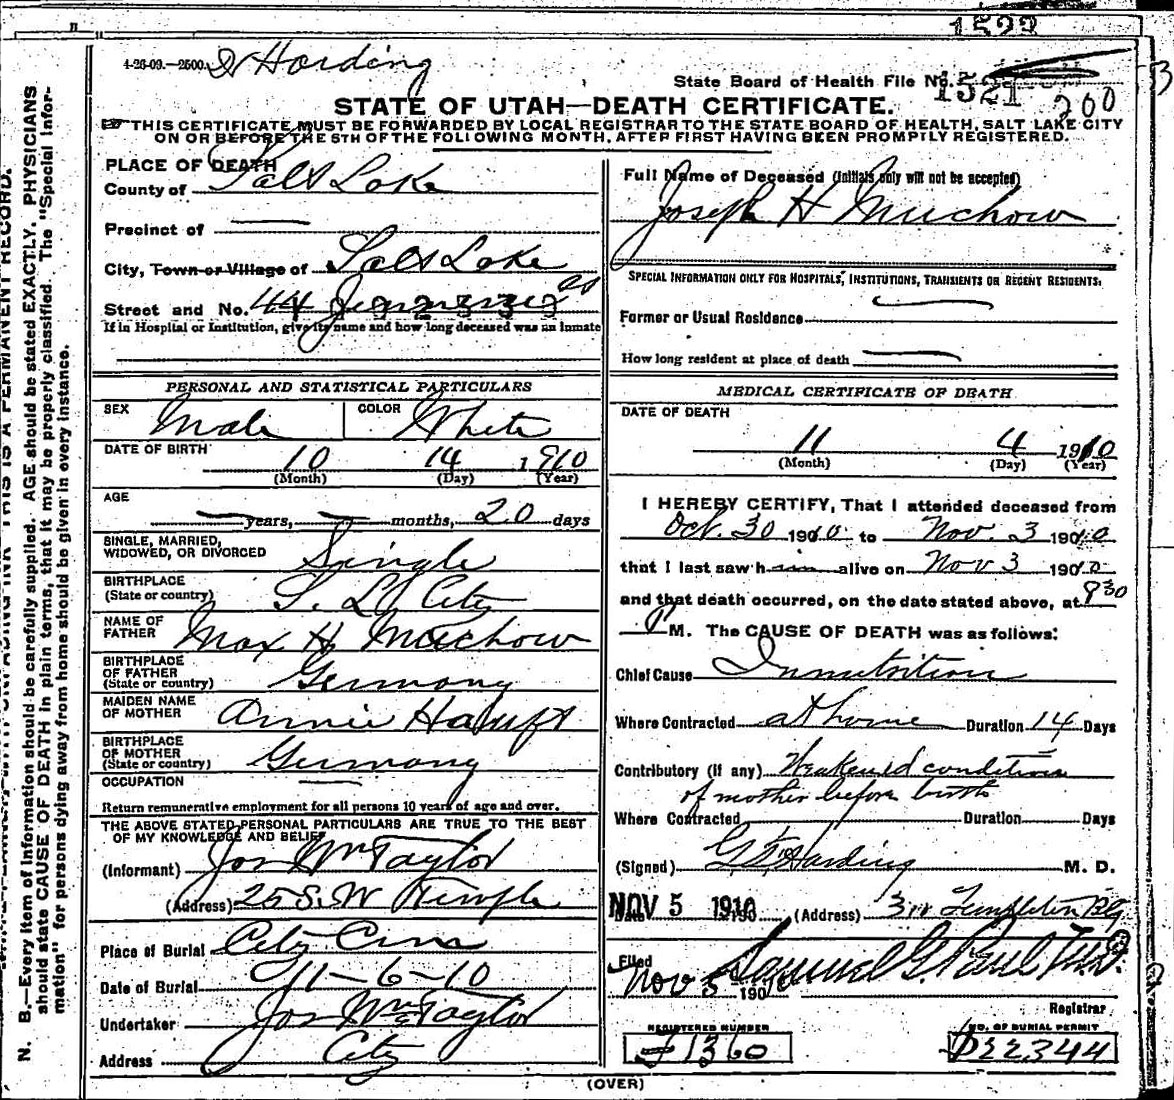 1522
4-26-09.—2500.
Harding
State Board of Health File No. 1521
200
STATE OF UTAH—DEATH CERTIFICATE.
THIS CERTIFICATE MUST BE FORWARDED BY LOCAL REGISTRAR TO THE STATE BOARD OF HEALTH, SALT LAKE CITY
ON OR BEFORE THE 5TH OF THE FOLLOWING MONTH, AFTER FIRST HAVING BEEN PROMPLY REGISTERED.
PLACE OF DEATH
County of Salt Lake
Precinct of —
City, Town or Village of Salt Lake
Street and No. 44
If in Hospital or Institution, give its name and how long deceased was an inmate
Full Name of Deceased (Initials only will not be accepted)
Joseph H Muchow
SPECIAL INFORMATION ONLY FOR HOSPITALS, INSTITUTIONS, TRANSIENTS OR RECENT RESIDENTS:
Former or Usual Residence
How long resident at place of death —
PERSONAL AND STATISTICAL PARTICULARS
SEX Male COLOR White
DATE OF BIRTH 10 14 1910
(Month) (Day) (Year)
AGE
— years, — months, 20 days
SINGLE, MARRIED,
WIDOWED, OR DIVORCED Single
BIRTHPLACE
(State or country) S. L. City
NAME OF
FATHER Max H Muchow
BIRTHPLACE
OF FATHER
(State or country) Germany
MAIDEN NAME
OF MOTHER Annie Haupt
BIRTHPLACE
OF MOTHER
(State or country) Germany
OCCUPATION —
Return remunerative employment for all persons 10 years of age and over.
THE ABOVE STATED PERSONAL PARTICULARS ARE TRUE TO THE BEST
OF MY KNOWLEDGE AND BELIEF
(Informant) Jos Wm Taylor
(Address) 25 S. W Temple
Place of Burial City Cem
Date of Burial 11-6-10
Undertaker Jos Wm Taylor
Address City
MEDICAL CERTIFICATE OF DEATH
DATE OF DEATH
11 4 1910
(Month) (Day) (Year)
I HEREBY CERTIFY, That I attended deceased from
Oct. 30 1910 to Nov. 3 1910
that I last saw him alive on Nov 3 1910
and that death occurred, on the date stated above, at 830
P M. The CAUSE OF DEATH was as follows:
Chief Cause Innutrition
Where Contracted at home Duration 14 Days
Contributory (if any) Weakened condition
of mother before birth
Where Contracted Duration Days
(Signed) Harding M. D.
NOV 5 1910 (Address) Templeton Blg
Filed
Nov 5 190 Samuel G. Paul
Registrar
REGISTERED NUMBER
1360
NO. OF BURIAL PERMIT
D22344
(OVER)
N. B.—Every item of information should be carefully supplied. AGE should be stated EXACTLY. PHYSICIANS
should state CAUSE OF DEATH in plain terms, that it may be properly classified. The "Special Infor-
mation" for persons dying away from home should be given in every instance.
THIS IS A PERMANENT RECORD.